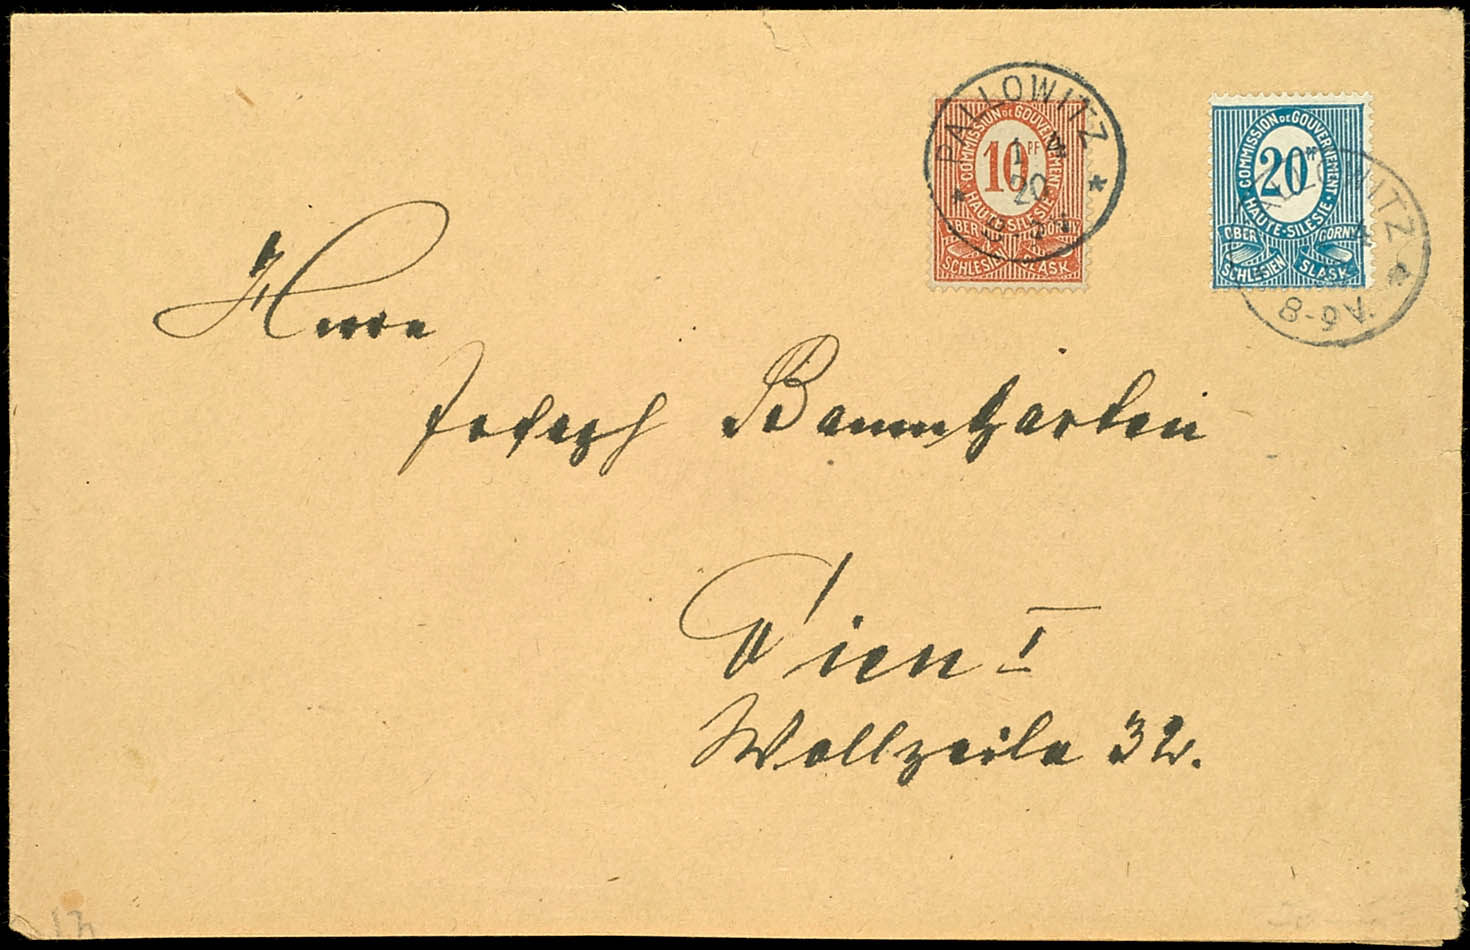 PALLOWITZ
1 4
20
COMMISSION DE GOUVERNEMENT
10 PF
HAUTE-SILESIE
OBER GORNY
SCHLESIEN SLASK
COMMISSION DE GOUVERNEMENT
20 PF
HAUTE-SILESIE
OBER GORNY
SCHLESIEN SLASK
8-9V.
Herrn
Joseph Baumgarten
Wien I
Wollzeile 32.